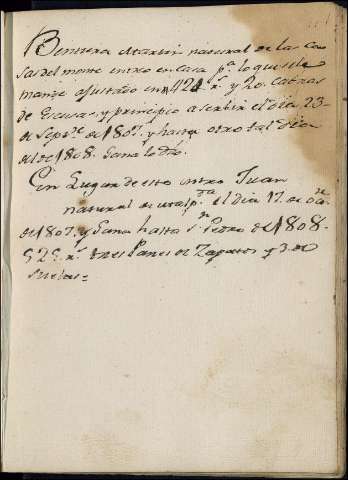 Bentura Martin natural de las Ca-
sas del monte entro en casa pa lo que se le
mande ajustado en 424 rs y 20 Cabras
de Escusa y principio a servir el dia 23
de Septre de 1807 y hasta otro tal dia
de 1808. Gana lo dho.
En Lugar de este entro Juan
natural de el dia 17 de
de 1807 y Gana hasta Sn Pedro de 1808
rs tres Pares de Zapatos y 3 de
Suelas =